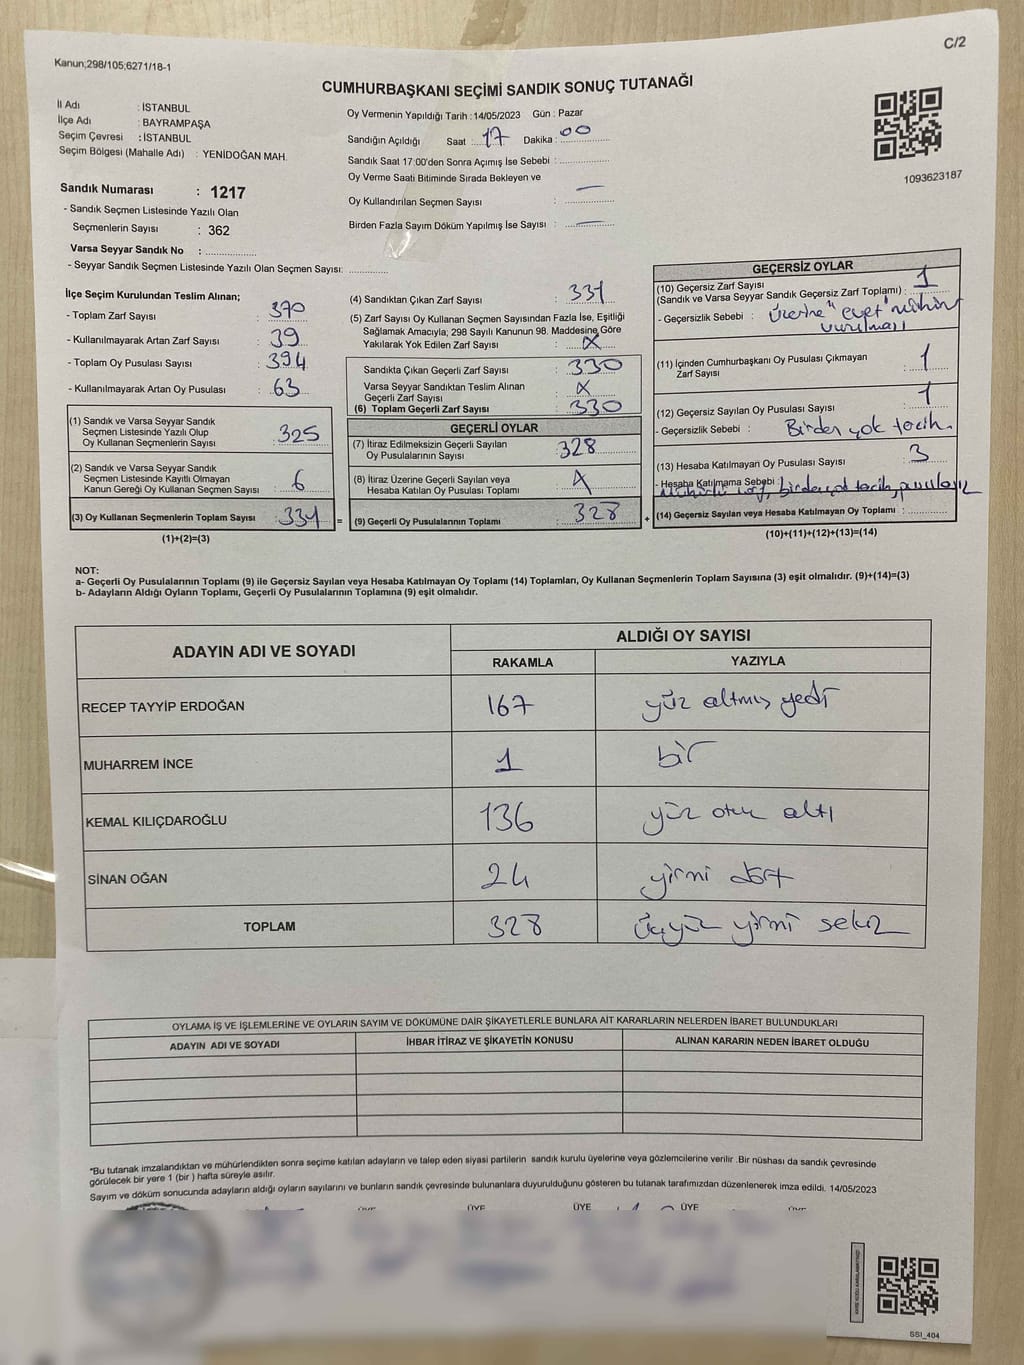 C/2
Kanun;298/105;6271/18-1
CUMHURBAŞKANI SEÇİMİ SANDIK SONUÇ TUTANAĞI
İl Adı : İSTANBUL
İlçe Adı : BAYRAMPAŞA
Seçim Çevresi : İSTANBUL
Seçim Bölgesi (Mahalle Adı) : YENİDOĞAN MAH.
Oy Vermenin Yapıldığı Tarih : 14/05/2023 Gün : Pazar
Sandığın Açıldığı Saat : 17 Dakika : 00
Sandık Saat 17:00'den Sonra Açımış İse Sebebi :
Oy Verme Saati Bitiminde Sırada Bekleyen ve
Oy Kullandırılan Seçmen Sayısı : —
Birden Fazla Sayım Döküm Yapılmış İse Sayısı : —
1093623187
Sandık Numarası : 1217
- Sandık Seçmen Listesinde Yazılı Olan
Seçmenlerin Sayısı : 362
Varsa Seyyar Sandık No :
- Seyyar Sandık Seçmen Listesinde Yazılı Olan Seçmen Sayısı:
İlçe Seçim Kurulundan Teslim Alınan;
- Toplam Zarf Sayısı : 370
- Kullanılmayarak Artan Zarf Sayısı : 39
- Toplam Oy Pusulası Sayısı : 394
- Kullanılmayarak Artan Oy Pusulası : 63
(1) Sandık ve Varsa Seyyar Sandık
Seçmen Listesinde Yazılı Olup
Oy Kullanan Seçmenlerin Sayısı : 325
(2) Sandık ve Varsa Seyyar Sandık
Seçmen Listesinde Kayıtlı Olmayan
Kanun Gereği Oy Kullanan Seçmen Sayısı : 6
(3) Oy Kullanan Seçmenlerin Toplam Sayısı : 331 =
(1)+(2)=(3)
(4) Sandıktan Çıkan Zarf Sayısı : 331
(5) Zarf Sayısı Oy Kullanan Seçmen Sayısından Fazla İse, Eşitliği
Sağlamak Amacıyla; 298 Sayılı Kanunun 98. Maddesine Göre
Yakılarak Yok Edilen Zarf Sayısı :
Sandıkta Çıkan Geçerli Zarf Sayısı : 330
Varsa Seyyar Sandıktan Teslim Alınan
Geçerli Zarf Sayısı :
(6) Toplam Geçerli Zarf Sayısı : 330
GEÇERLİ OYLAR
(7) İtiraz Edilmeksizin Geçerli Sayılan
Oy Pusulalarının Sayısı : 328
(8) İtiraz Üzerine Geçerli Sayılan veya
Hesaba Katılan Oy Pusulası Toplamı :
(9) Geçerli Oy Pusulalarının Toplamı : 328 +
GEÇERSİZ OYLAR
(10) Geçersiz Zarf Sayısı
(Sandık ve Varsa Seyyar Sandık Geçersiz Zarf Toplamı) : 1
- Geçersizlik Sebebi : Üzerine "evet" mührü
vurulması
(11) İçinden Cumhurbaşkanı Oy Pusulası Çıkmayan
Zarf Sayısı : 1
(12) Geçersiz Sayılan Oy Pusulası Sayısı : 1
- Geçersizlik Sebebi : Birden çok tercih.
(13) Hesaba Katılmayan Oy Pusulası Sayısı : 3
- Hesaba Katılmama Sebebi : Mühürlü zarf, birden çok tercih, pusulasız
(14) Geçersiz Sayılan veya Hesaba Katılmayan Oy Toplamı :
(10)+(11)+(12)+(13)=(14)
NOT:
a- Geçerli Oy Pusulalarının Toplamı (9) ile Geçersiz Sayılan veya Hesaba Katılmayan Oy Toplamı (14) Toplamları, Oy Kullanan Seçmenlerin Toplam Sayısına (3) eşit olmalıdır. (9)+(14)=(3)
b- Adayların Aldığı Oyların Toplamı, Geçerli Oy Pusulalarının Toplamına (9) eşit olmalıdır.
ADAYIN ADI VE SOYADI ALDIĞI OY SAYISI
RAKAMLA YAZIYLA
RECEP TAYYİP ERDOĞAN 167 yüz altmış yedi
MUHARREM İNCE 1 bir
KEMAL KILIÇDAROĞLU 136 yüz otuz altı
SİNAN OĞAN 24 yirmi dört
TOPLAM 328 üçyüz yirmi sekiz
OYLAMA İŞ VE İŞLEMLERİNE VE OYLARIN SAYIM VE DÖKÜMÜNE DAİR ŞİKAYETLERLE BUNLARA AİT KARARLARIN NELERDEN İBARET BULUNDUKLARI
ADAYIN ADI VE SOYADI İHBAR İTİRAZ VE ŞİKAYETİN KONUSU ALINAN KARARIN NEDEN İBARET OLDUĞU
*Bu tutanak imzalandıktan ve mühürlendikten sonra seçime katılan adayların ve talep eden siyasi partilerin sandık kurulu üyelerine veya gözlemcilerine verilir .Bir nüshası da sandık çevresinde
görülecek bir yere 1 (bir ) hafta süreyle asılır.
Sayım ve döküm sonucunda adayların aldığı oyların sayılarını ve bunların sandık çevresinde bulunanlara duyurulduğunu gösteren bu tutanak tarafımızdan düzenlenerek imza edildi. 14/05/2023
ÜYE ÜYE ÜYE ÜYE ÜYE
SSI_404